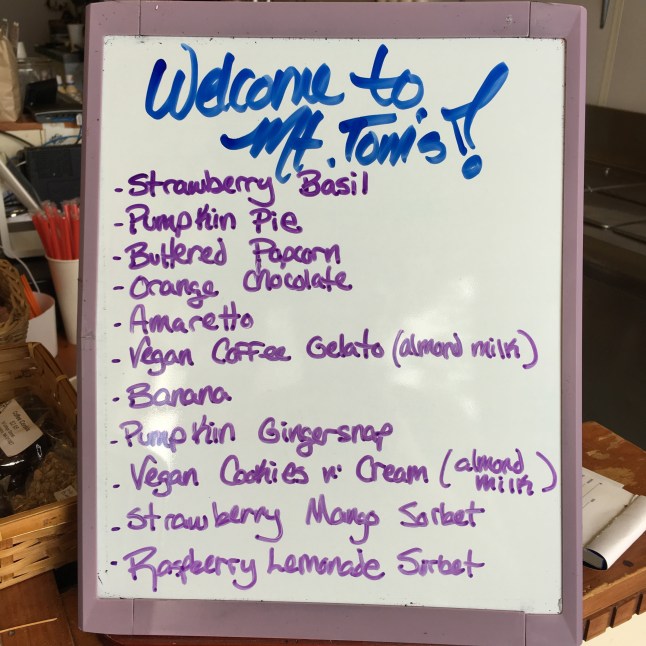 Welcome to
Mt. Tom's!
- Strawberry Basil
- Pumpkin Pie
- Buttered Popcorn
- Orange Chocolate
- Amaretto
- Vegan Coffee Gelato (almond milk)
- Banana
- Pumpkin Gingersnap
- Vegan Cookies n' Cream (almond milk)
- Strawberry Mango Sorbet
- Raspberry Lemonade Sorbet